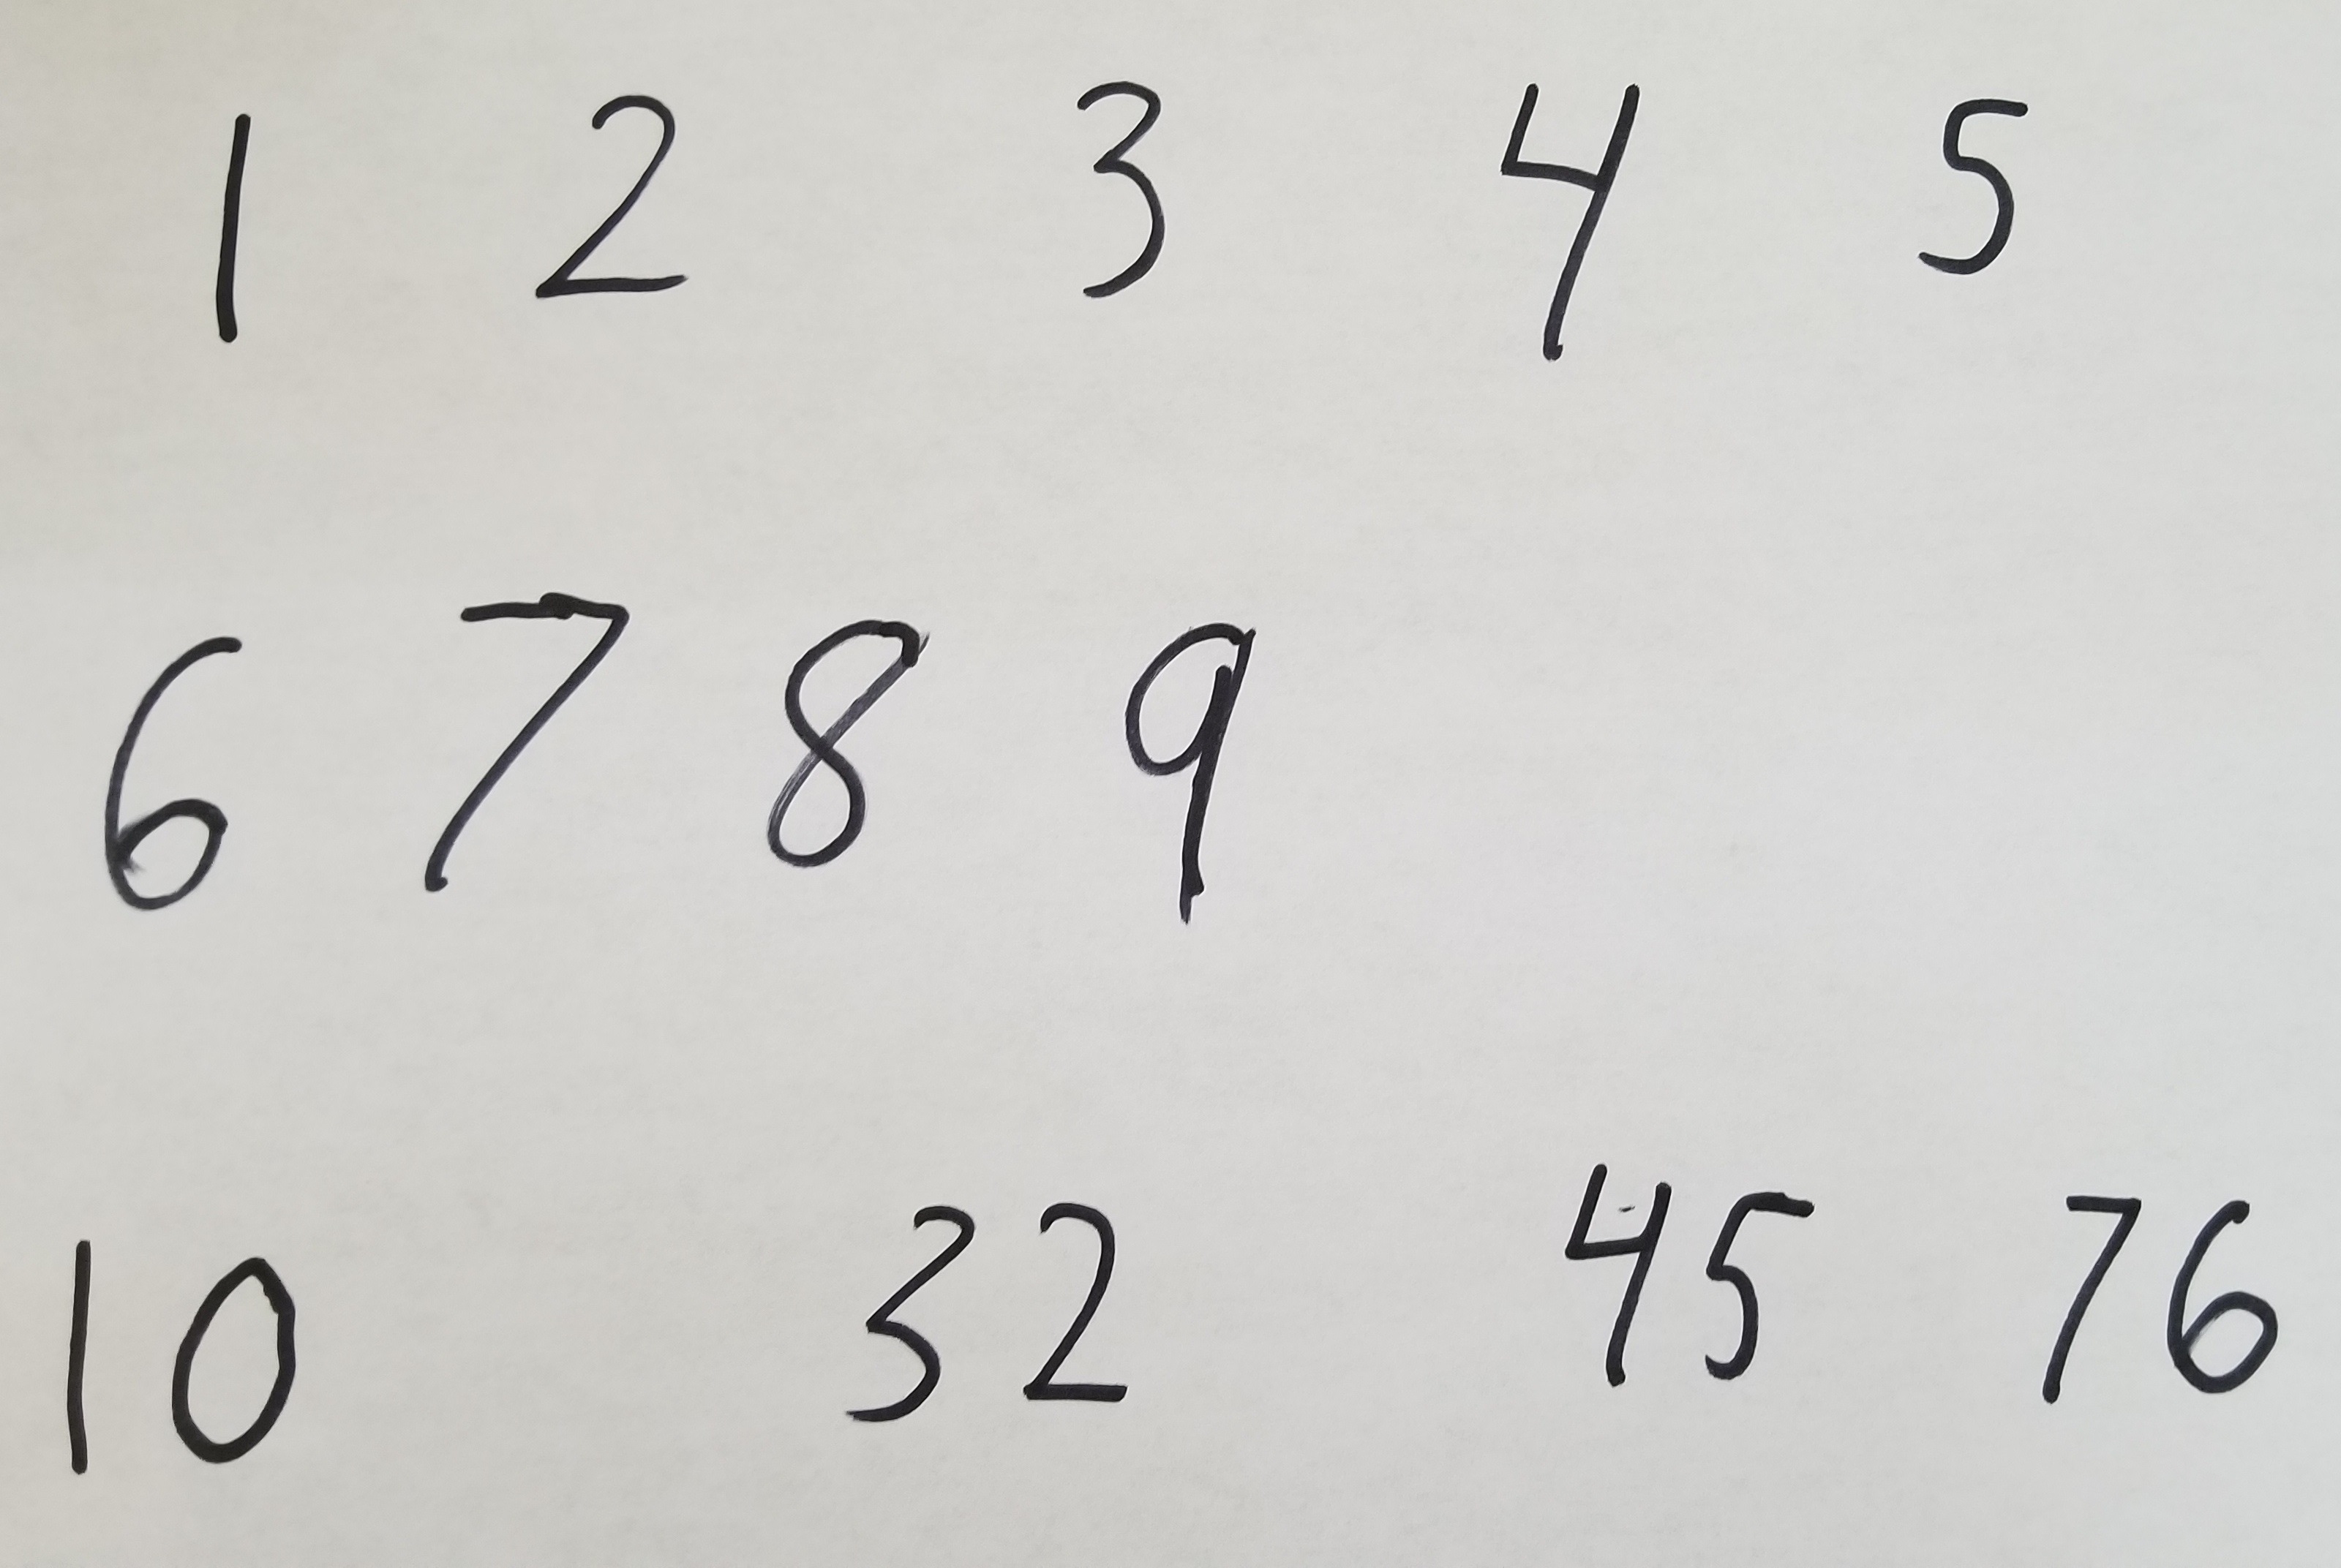 1 2 3 4 5
6 7 8 9
10 32 45 76